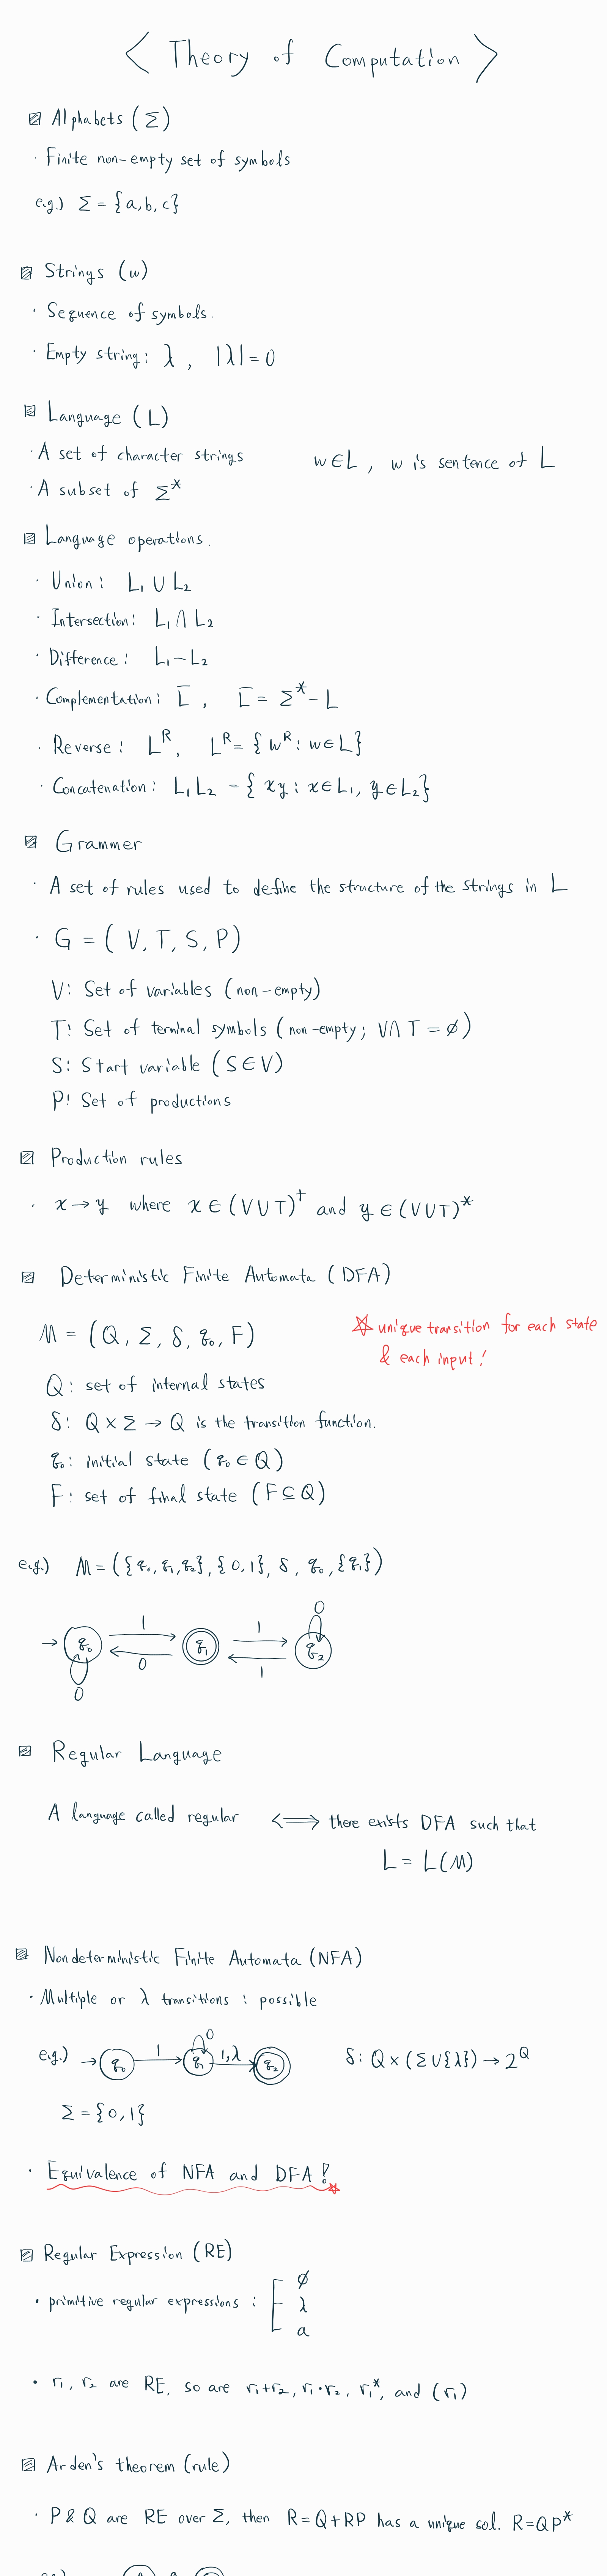 < Theory of Computation >
Alphabets (Σ)
· Finite non-empty set of symbols
e.g.) Σ = {a, b, c}
Strings (w)
· Sequence of symbols.
· Empty string: λ, |λ| = 0
Language (L)
· A set of character strings w∈L, w is sentence of L
· A subset of Σ*
Language operations.
· Union: L₁ ∪ L₂
· Intersection: L₁ ∩ L₂
· Difference: L₁ - L₂
· Complementation: L̅, L̅ = Σ* - L
· Reverse: Lᴿ, Lᴿ = {wᴿ : w∈L}
· Concatenation: L₁L₂ = {xy : x∈L₁, y∈L₂}
Grammer
· A set of rules used to define the structure of the strings in L
· G = (V, T, S, P)
V: Set of variables (non-empty)
T: Set of terminal symbols (non-empty; V∩T = ∅)
S: Start variable (S∈V)
P: Set of productions
Production rules
· x → y where x ∈ (V∪T)⁺ and y ∈ (V∪T)*
Deterministic Finite Automata (DFA)
M = (Q, Σ, δ, q₀, F) ☆ unique transition for each state
& each input!
Q: set of internal states
δ: Q × Σ → Q is the transition function.
q₀: initial state (q₀ ∈ Q)
F: set of final state (F ⊆ Q)
e.g.) M = ({q₀, q₁, q₂}, {0, 1}, δ, q₀, {q₁})
0
1 1
→ q₀ q₁ q₂
0 1
0
Regular Language
A language called regular ⟺ there exists DFA such that
L = L(M)
Nondeterministic Finite Automata (NFA)
· Multiple or λ transitions : possible
0
e.g.) → q₀ 1 q₁ 1,λ q₂ δ: Q × (Σ∪{λ}) → 2^Q
Σ = {0, 1}
· Equivalence of NFA and DFA! ☆
Regular Expression (RE)
∅
· primitive regular expressions : λ
a
· r₁, r₂ are RE, so are r₁+r₂, r₁·r₂, r₁*, and (r₁)
Arden's theorem (rule)
· P & Q are RE over Σ, then R=Q+RP has a unique sol. R=QP*